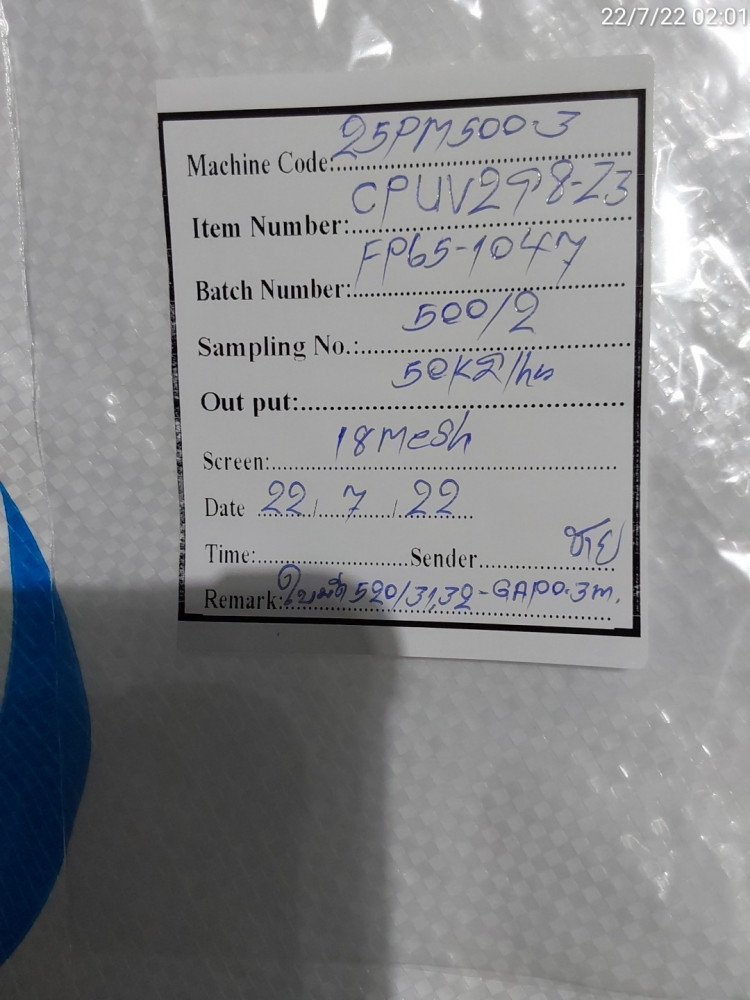 22/7/22 02:01
Machine Code: 25PM500-3
Item Number: CPUV298-Z3
Batch Number: FP65-1047
Sampling No.: 500/2
Out put: 50Kg/hs
Screen: 18 Mesh
Date 22 / 7 / 22
Time: Sender ชัย
Remark: ใบมีด 520/31,32-GAP0.3m.